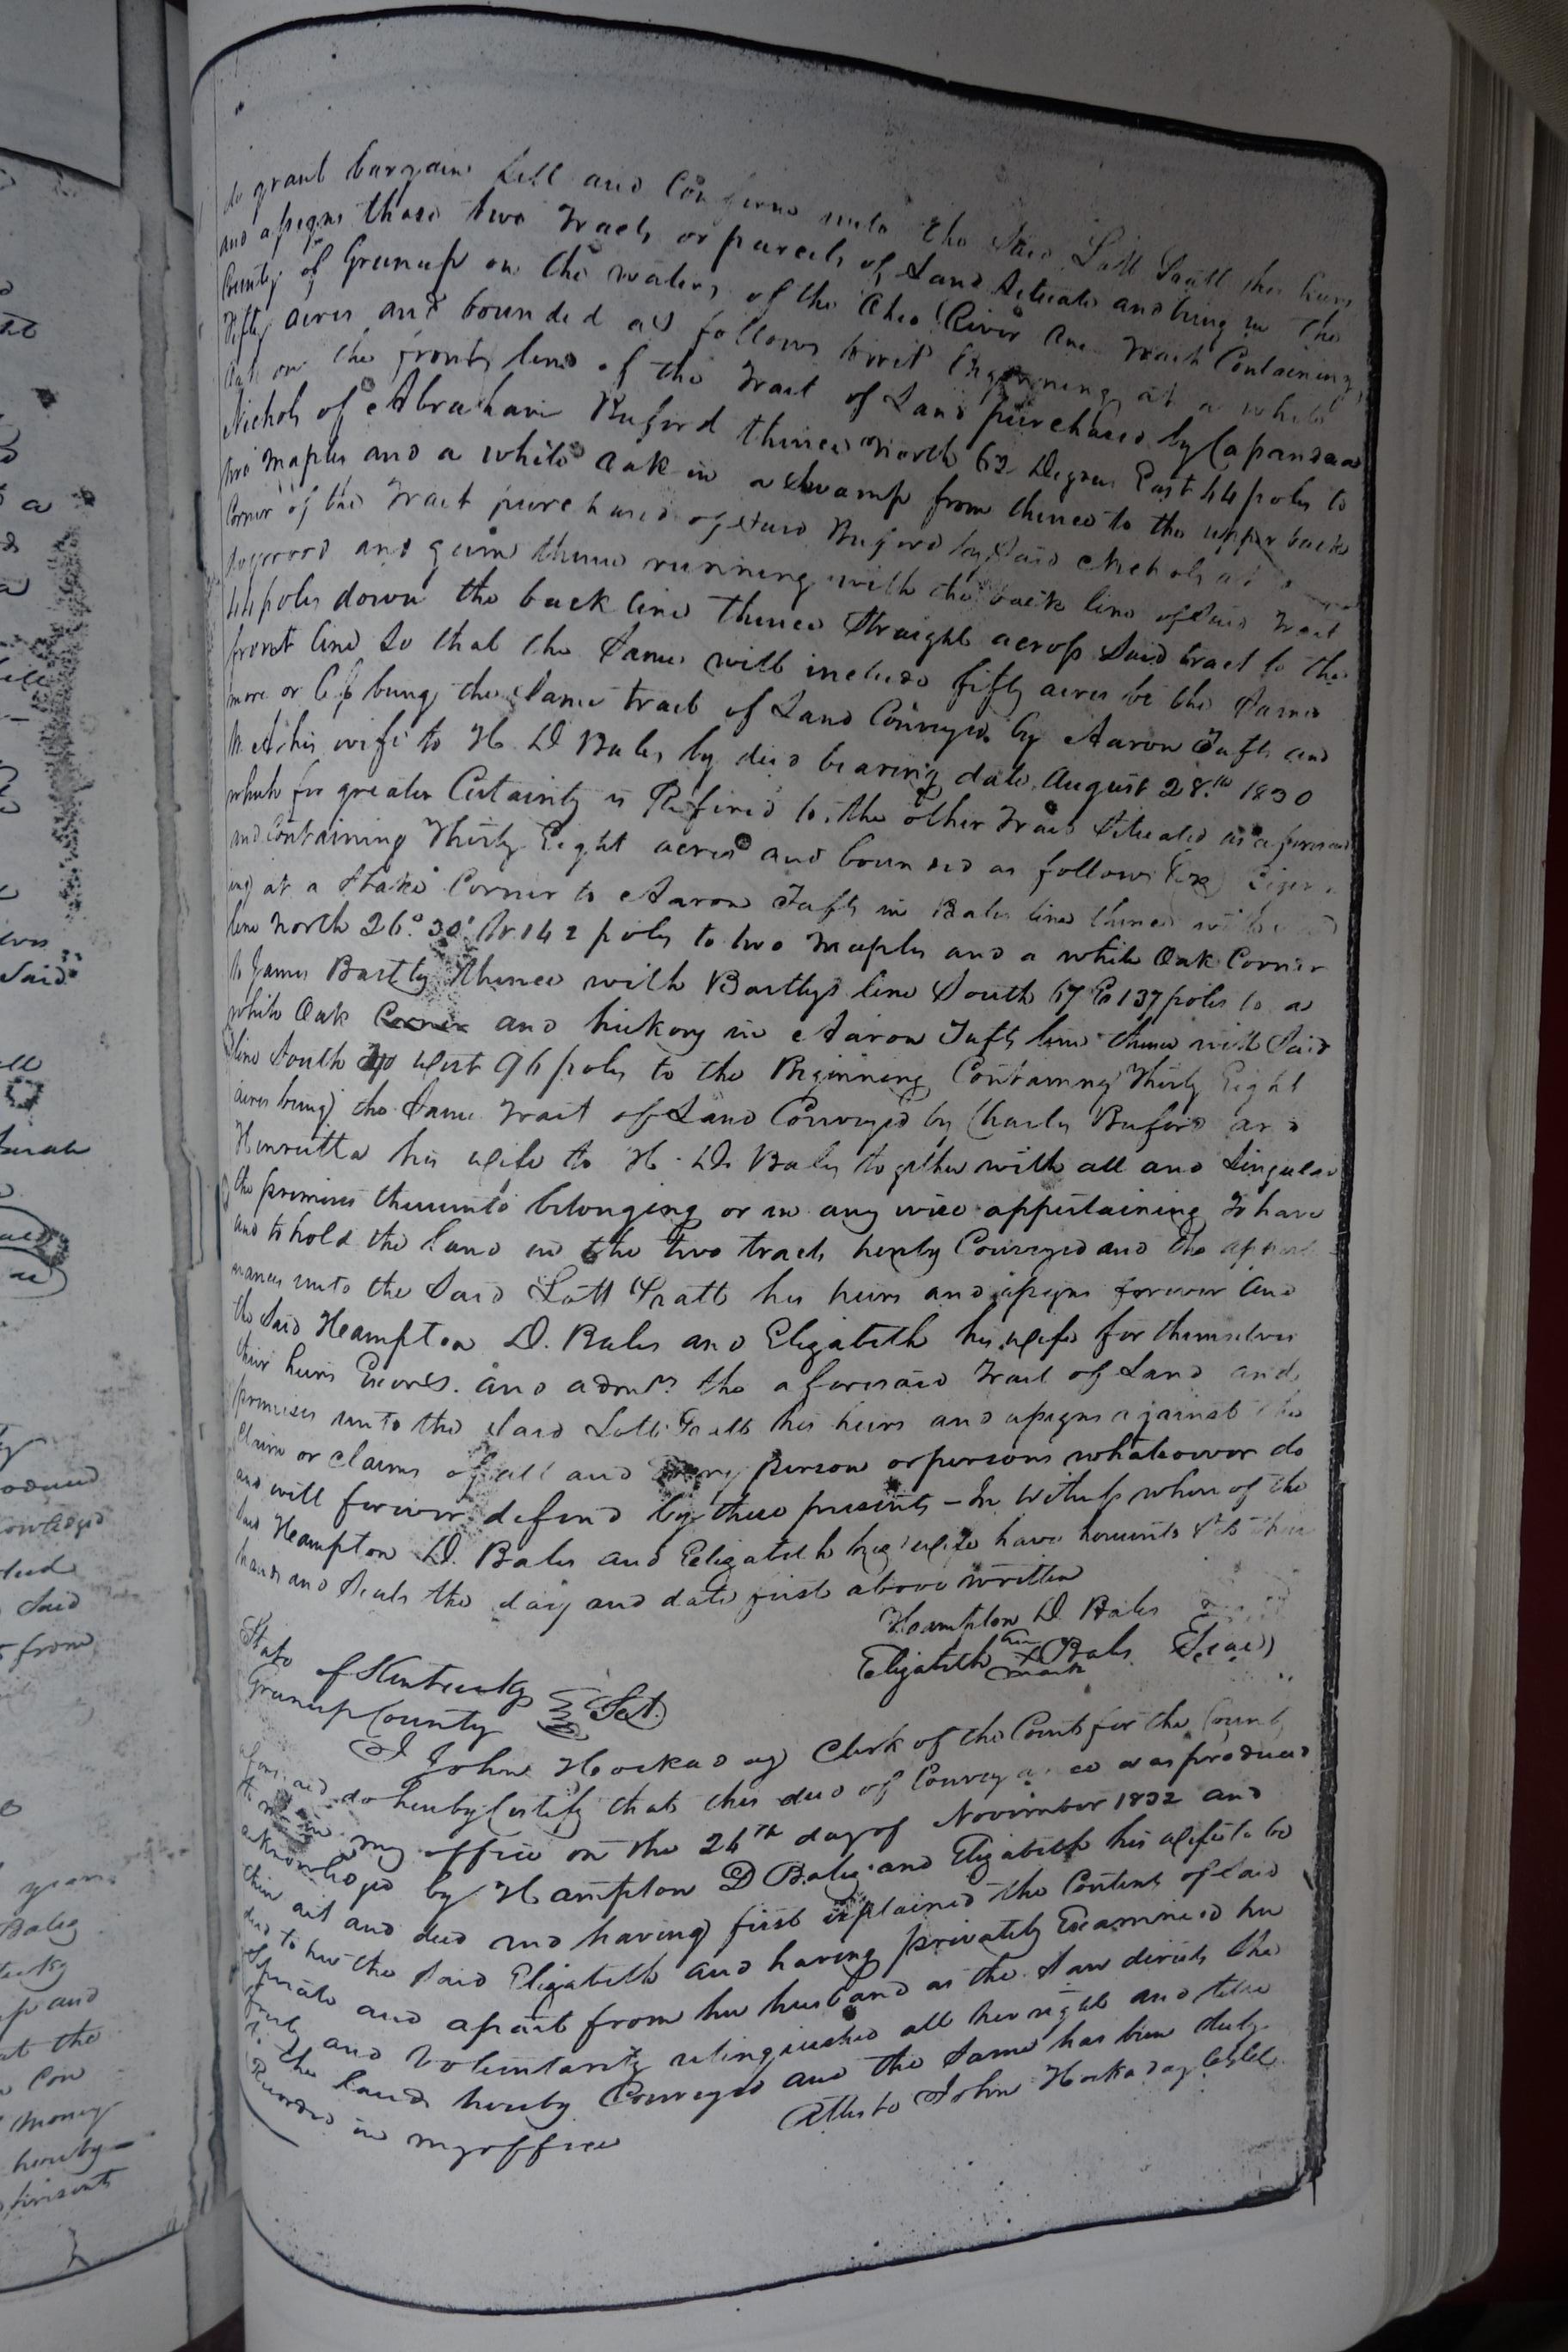 do grant bargain sell and Confirm unto the said Lott Pratt his heirs
and assigns those two tracts or parcels of Land Situate and being in the
County of Greenup on the waters of the Ohio River One tract Containing
Fifty acres and bounded as follows towit Beginning at a white
Oak on the front line of the tract of Land purchased by
Nichols of Abraham Buford thence North 62 Degrees East 44 poles to
two maples and a white Oak in a Swamp from thence to the upper back
Corner of the tract purchased of said Buford by said Nichols at a
dogwood and gum thence running with the back line of said tract
44 poles down the back line thence Straight across said tract to the
front line So that the Same will include fifty acres be the Same
more or less being the same tract of Land Conveyed by Aaron Tufts and
his wife to H D Bales by deed bearing date August 28th 1830
which for greater Certainty is Refered to. the other tract Situated as aforesaid
and containing Thirty Eight acres and bounded as follows
ing at a Stake Corner to Aaron Tufts in Bales line thence with said
line North 26° 30' W 142 poles to two maples and a white Oak Corner
to James Bartley thence with Bartleys line South 67 E 137 poles to a
white Oak Corner and hickory in Aaron Tufts line thence with said
line South West 96 poles to the Beginning Containing Thirty Eight
acres being the Same tract of Land Conveyed by Charles Buford and
Henrietta his wife to H. D. Bales together with all and Singular
the premises thereunto belonging or in any wise appertaining To have
and to hold the land in the two tracts hereby Conveyed and the appurte
nances unto the Said Lott Pratt his heirs and assigns forever And
the Said Hampton D. Bales and Elizabeth his wife for themselves
their heirs Execrs. and admrs the aforesaid tract of Land and
premises unto the Said Lott Pratt his heirs and assigns against the
Claim or claims of all and every person or persons whatsoever do
and will forever defend by these presents - In Witness where of the
Said Hampton D. Bales and Elizabeth his wife have hereunto Set their
hands and Seals the day and date first above written
Hampton D. Bales
Elizabeth her X mark Bales (Seal)
State of Kentucky
Greenup County Sct.
I John Hockaday Clerk of the Court for the County
aforesaid do hereby Certify that this deed of Conveyance was produced
to me in my office on the 26th day of November 1832 and
acknowledged by Hampton D Bales and Elizabeth his wife to be
their act and deed and having first explained the Contents of said
deed to her the Said Elizabeth and having privately Examined her
Separate and apart from her husband as the Law directs She
freely and Voluntarily relinquished all her right and title
to the lands hereby Conveyed and the Same has been duly
Recorded in my office
Atteste John Hockaday